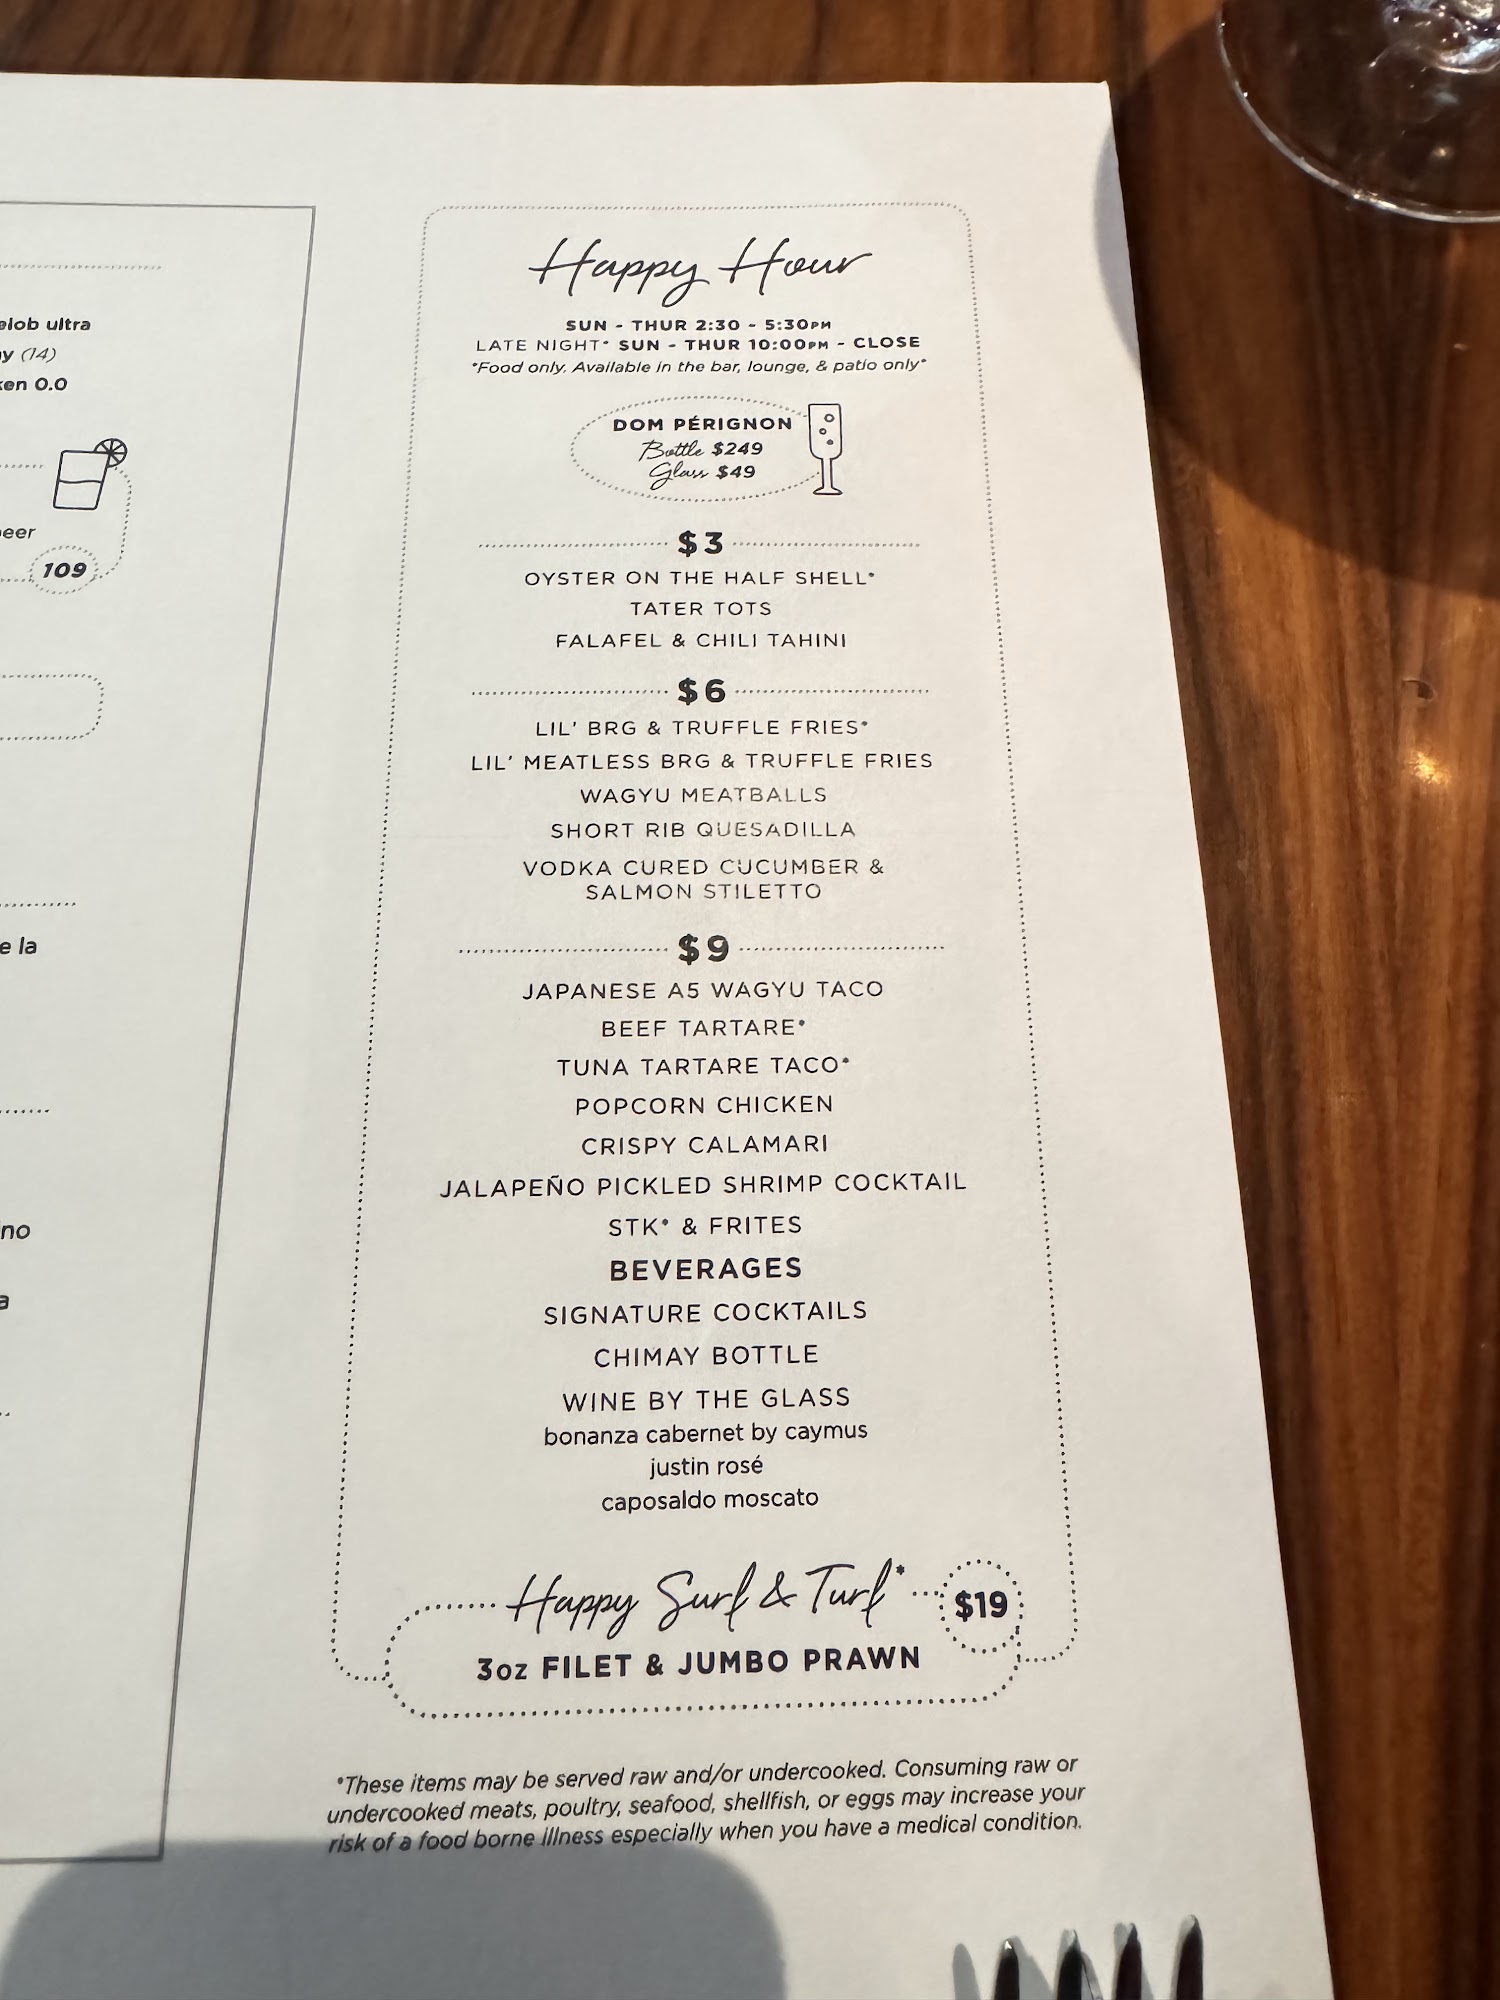 elob ultra
y (14)
ken 0.0
beer
109
e la
no
a
Happy Hour
SUN - THUR 2:30 - 5:30PM
LATE NIGHT* SUN - THUR 10:00PM - CLOSE
*Food only. Available in the bar, lounge, & patio only*
DOM PÉRIGNON
Bottle $249
Glass $49
$3
OYSTER ON THE HALF SHELL*
TATER TOTS
FALAFEL & CHILI TAHINI
$6
LIL' BRG & TRUFFLE FRIES*
LIL' MEATLESS BRG & TRUFFLE FRIES
WAGYU MEATBALLS
SHORT RIB QUESADILLA
VODKA CURED CUCUMBER &
SALMON STILETTO
$9
JAPANESE A5 WAGYU TACO
BEEF TARTARE*
TUNA TARTARE TACO*
POPCORN CHICKEN
CRISPY CALAMARI
JALAPEÑO PICKLED SHRIMP COCKTAIL
STK* & FRITES
BEVERAGES
SIGNATURE COCKTAILS
CHIMAY BOTTLE
WINE BY THE GLASS
bonanza cabernet by caymus
justin rosé
caposaldo moscato
Happy Surf & Turf* $19
3oz FILET & JUMBO PRAWN
*These items may be served raw and/or undercooked. Consuming raw or
undercooked meats, poultry, seafood, shellfish, or eggs may increase your
risk of a food borne illness especially when you have a medical condition.